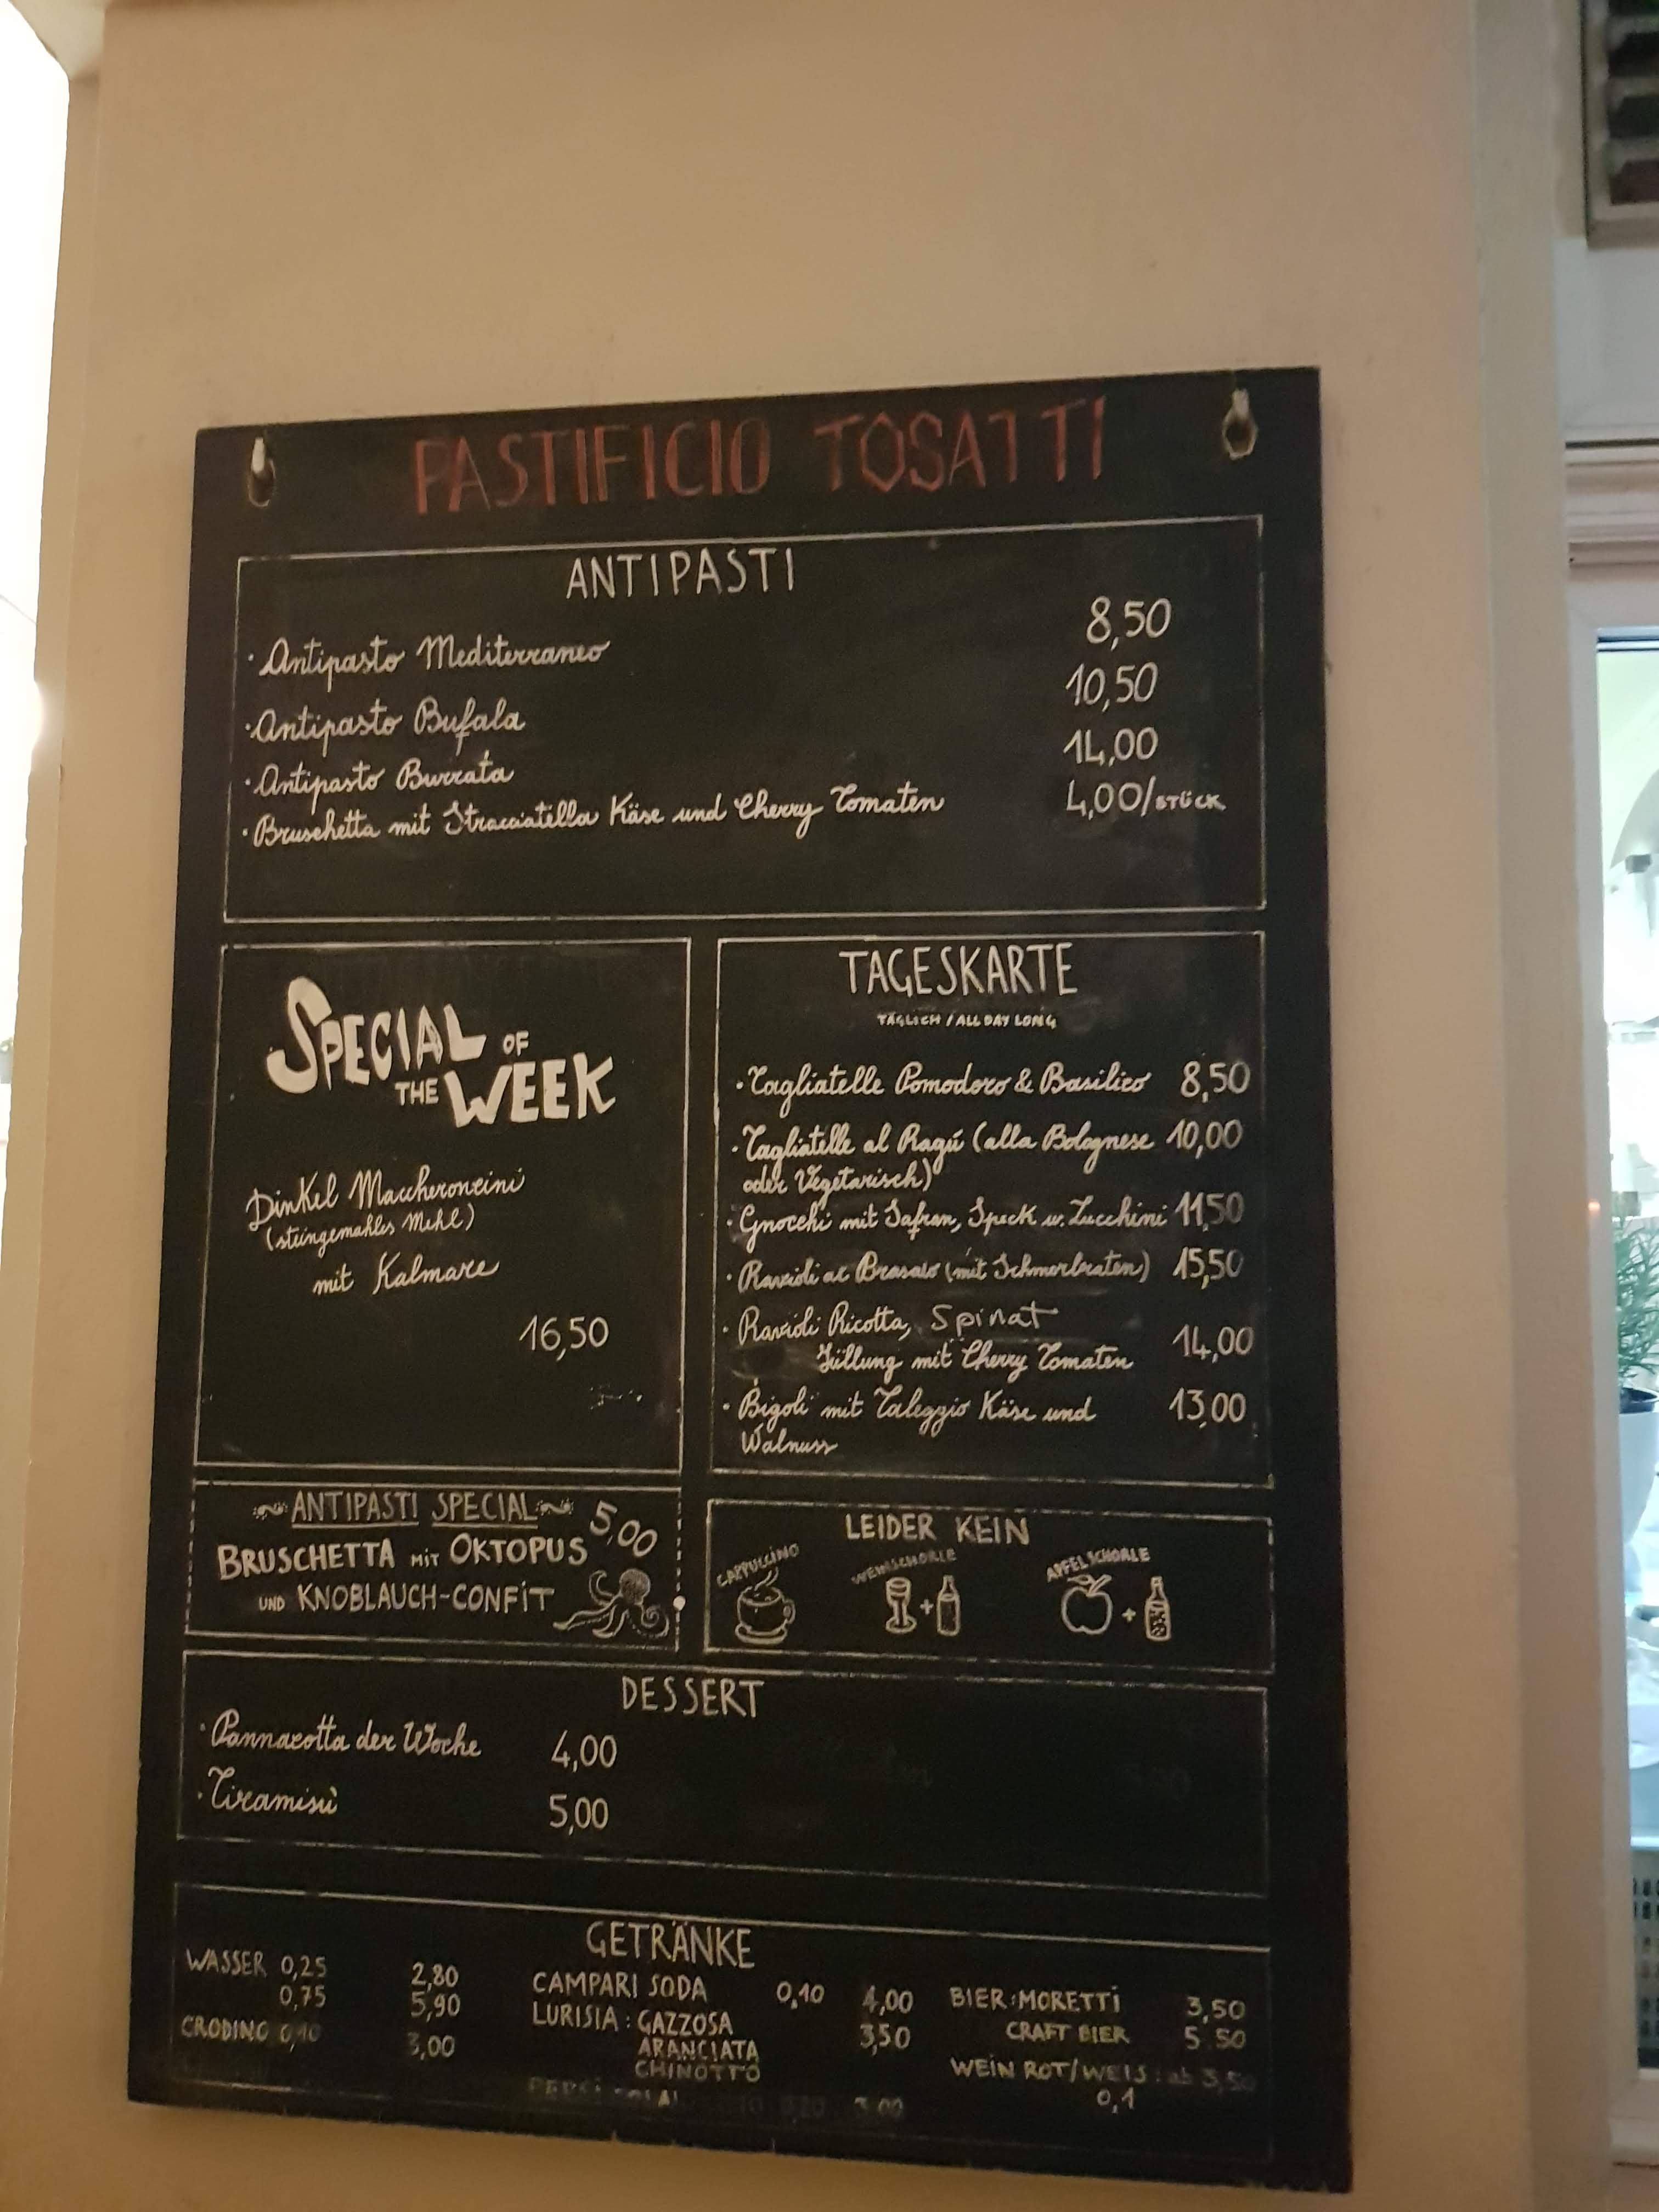 PASTIFICIO TOSATTI
ANTIPASTI
· Antipasto Mediterraneo 8,50
· Antipasto Bufala 10,50
· Antipasto Burrata 14,00
· Bruschetta mit Stracciatella Käse und Cherry Tomaten 4,00/STÜCK
SPECIAL OF
THE WEEK
Dinkel Maccheroncini
(steingemahles Mehl)
mit Kalmare
16,50
TAGESKARTE
TÄGLICH / ALL DAY LONG
· Tagliatelle Pomodoro & Basilico 8,50
· Tagliatelle al Ragú (alla Bolognese 10,00
oder Vegetarisch)
· Gnocchi mit Safran, Speck u. Zucchini 11,50
· Ravioli al Brasato (mit Schmorbraten) 15,50
· Ravioli Ricotta, Spinat
Füllung mit Cherry Tomaten 14,00
· Bigoli mit Taleggio Käse und 13,00
Walnuss
ANTIPASTI SPECIAL 5,00
BRUSCHETTA MIT OKTOPUS
UND KNOBLAUCH-CONFIT
LEIDER KEIN
CAPPUCCINO WEINSCHORLE APFELSCHORLE
+ +
DESSERT
· Pannacotta der Woche 4,00
· Tiramisù 5,00
GETRÄNKE
WASSER 0,25 2,80
0,75 5,90
CRODINO 0,10 3,00
CAMPARI SODA 0,10 4,00
LURISIA: GAZZOSA 3,50
ARANCIATA
CHINOTTO
3,00
BIER: MORETTI 3,50
CRAFT BIER 5.50
WEIN ROT/WEIS: ab 3,50
0,1